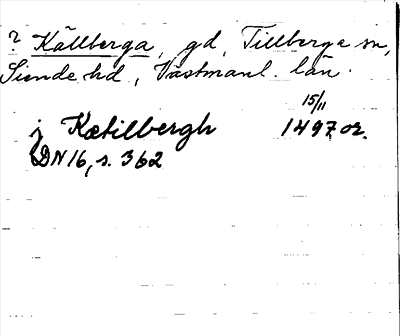 ? Källberga, gd, Tillberga sn,
Siende hd, Västmanl. län.
15/11
j Kætilbergh 1497 or.
DN 16, s. 362